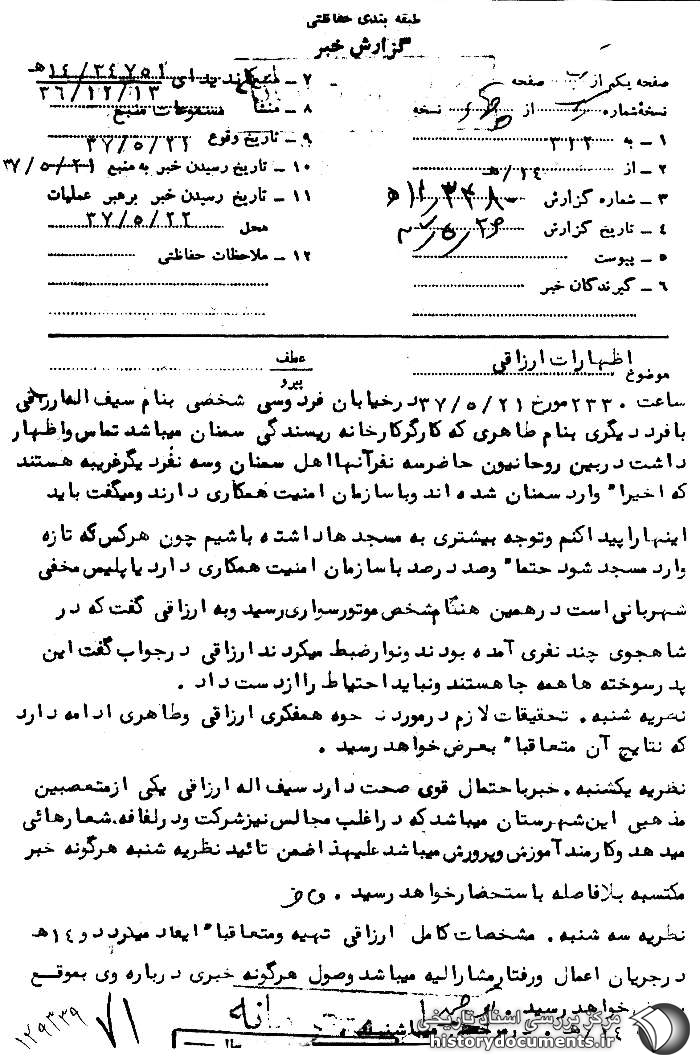 طبقه بندی حفاظتی
گزارش خبر
صفحه یکم از صفحه
نسخهٔ شماره از نسخه
۱ - به ۳۱۲
۲ - از ۱۴/ه
۳ - شماره گزارش
۴ - تاریخ گزارش
۵ - پیوست
۶ - گیرندگان خبر
۷ -
۳۶/۱۲/۱۳
۸ - منشأ مسموعات منبع
۹ - تاریخ وقوع ۳۷/۵/۲۱
۱۰ - تاریخ رسیدن خبر به منبع ۳۷/۵/۲۱
۱۱ - تاریخ رسیدن خبر برهبر عملیات
محل ۳۷/۵/۲۲
۱۲ - ملاحظات حفاظتی
موضوع اظهارات ارزاقی
عطف
پیرو
ساعت ۲۳۳۰ مورخ ۳۷/۵/۲۱ در خیابان فردوسی شخصی بنام سیف اله ارزاقی
با فرد دیگری بنام طاهری که کارگر کارخانه ریسندگی سمنان میباشد تماس و اظهار
داشت در بین روحانیون حاضر سه نفر آنها اهل سمنان و سه نفر دیگر غریبه هستند
که اخیرا" وارد سمنان شده اند و با سازمان امنیت همکاری دارند و میگفت باید
اینها را پیدا کنم و توجه بیشتری به مسجدها داشته باشیم چون هرکس که تازه
وارد مسجد شود حتما" وصد درصد با سازمان امنیت همکاری دارد یا پلیس مخفی
شهربانی است در همین هنگام شخص موتورسواری رسید و به ارزاقی گفت که در
شاهجوی چند نفری آمده بودند و نوار ضبط میکردند ارزاقی در جواب گفت این
پدرسوخته ها همه جا هستند و نباید احتیاط را از دست داد .
نظریه شنبه . تحقیقات لازم در مورد نحوه همفکری ارزاقی و طاهری ادامه دارد
که نتایج آن متعاقبا" بعرض خواهد رسید .
نظریه یکشنبه . خبر با احتمال قوی صحت دارد سیف اله ارزاقی یکی از متعصبین
مذهبی این شهرستان میباشد که در اغلب مجالس نیز شرکت و در لفافه شعارهائی
میدهد و کارمند آموزش و پرورش میباشد علیهذا ضمن تائید نظریه شنبه هرگونه خبر
مکتسبه بلافاصله باستحضار خواهد رسید .
نظریه سه شنبه . مشخصات کامل ارزاقی تهیه و متعاقبا" ایفاد میگردد و ۱۴ه
در جریان اعمال و رفتار مشارالیه میباشد وصول هرگونه خبری درباره وی بموقع
خواهد رسید .
۷۱
۱۲۹۳۳۹
مرکز بررسی اسناد تاریخی
historydocuments.ir